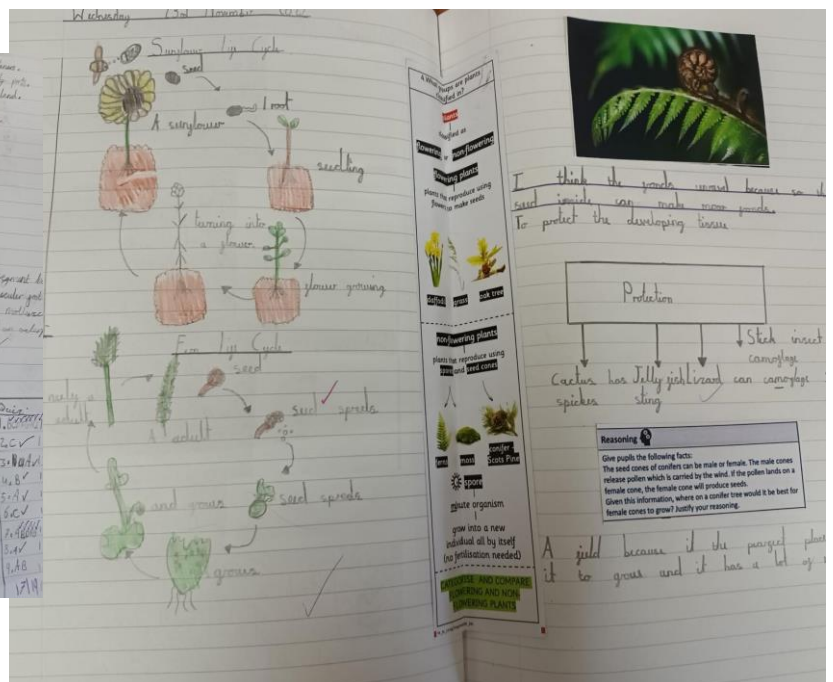 Wednesday
Sunflower Life Cycle
seed
1 root
A sunflower
seedling
turning into
a flower
flower growing
Fern Life Cycle
seed
seed spreds
A adult
adult
seed spreds
and grows
grows
plants
classified as
flowering or non-flowering
flowering plants
plants that reproduce using
flowers to make seeds
daffodil grass oak tree
non-flowering plants
plants that reproduce using
spore and seed cones
ferns moss conifer - Scots Pine
spore
minute organism
grow into a new
individual all by itself
(no fertilisation needed)
CATEGORISE AND COMPARE
FLOWERING AND NON-
FLOWERING PLANTS
I think the fronds
seed inside can make more
To protect the developing tissue
Protection
Stick insect
camoflage
Cactus has Jellyfish Lizard can camoflage
spickes sting
Reasoning
Give pupils the following facts:
The seed cones of conifers can be male or female. The male cones
release pollen which is carried by the wind. If the pollen lands on a
female cone, the female cone will produce seeds.
Given this information, where on a conifer tree would it be best for
female cones to grow? Justify your reasoning.
A because if the
it to grow and it has a lot of